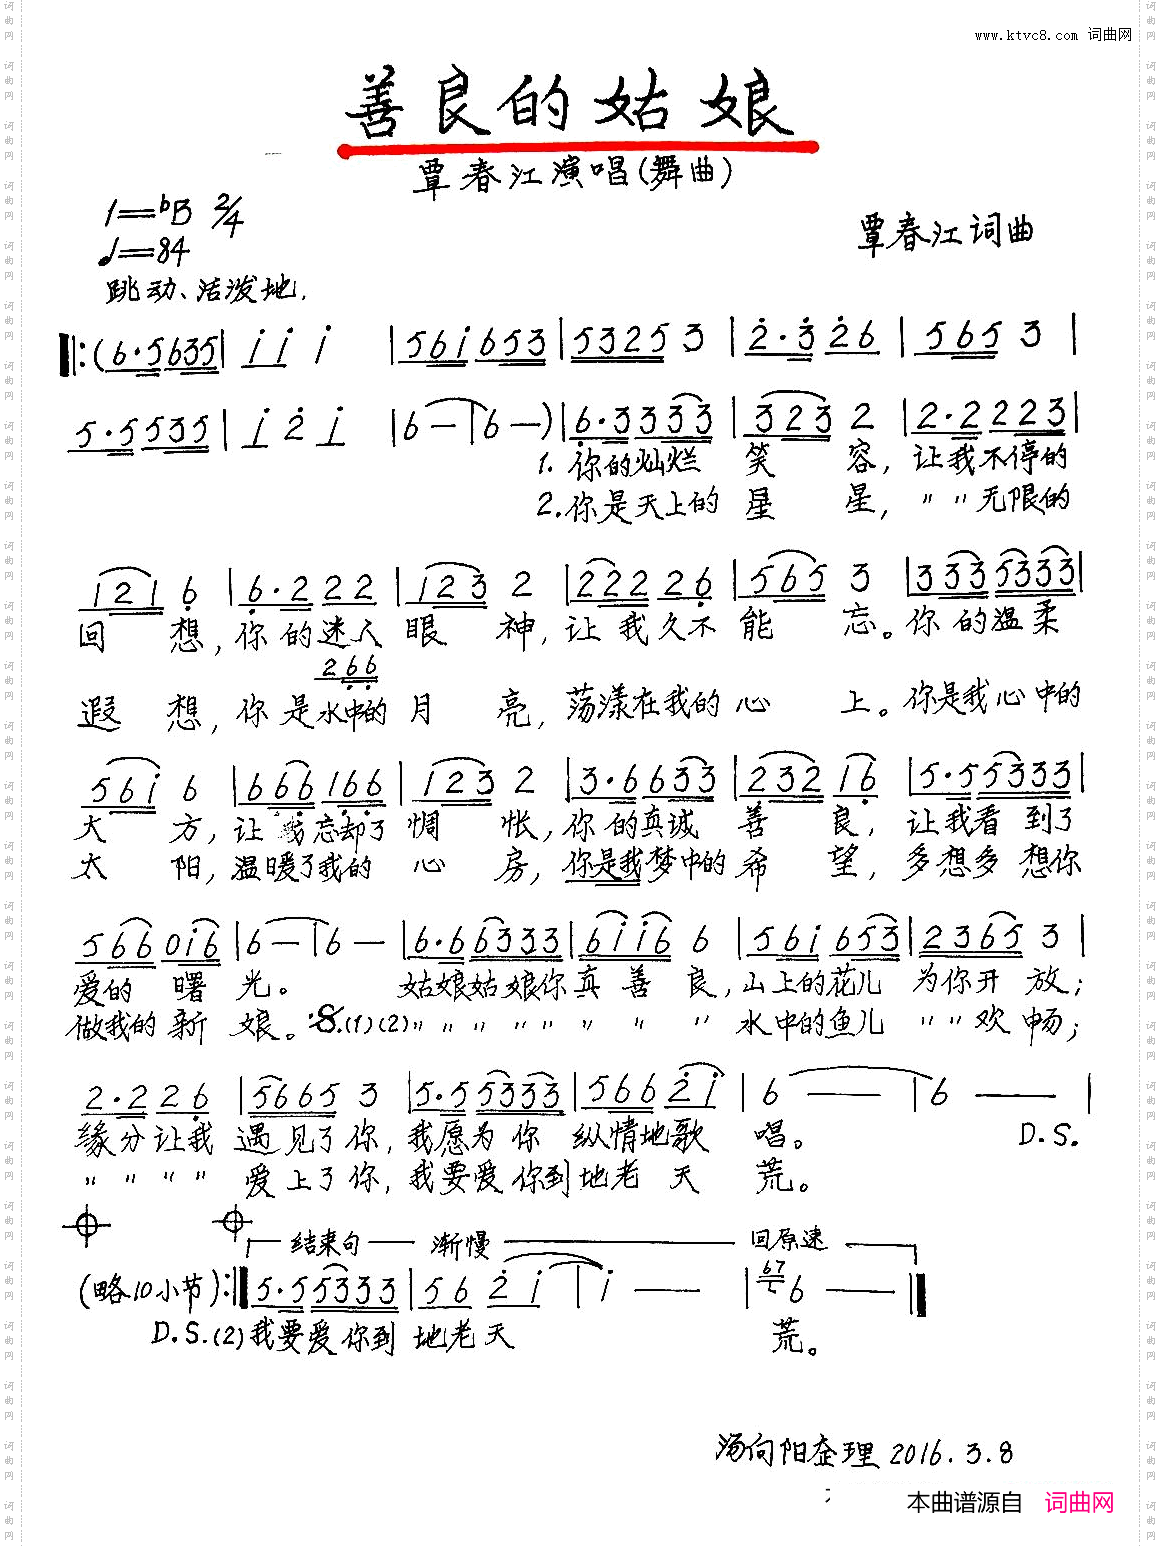 www.ktvc8.com 词曲网
善良的姑娘
覃春江演唱(舞曲)
1=♭B 2/4
覃春江词曲
♩=84
跳动、活泼地.
‖:(6·5635| i i i |56i653|53253|2·326|5653|
5·5535| i 2 i |6—|6—)|6·3333|3232|2·2223|
1.你的灿烂 笑 容, 让我不停的
2.你是天上的 星 星, 〃 〃 无限的
1216|6·222|1232|222226|5653|3335333|
回 想, 你的迷人 眼 神, 让我久不 能 忘。 你的温柔
266
遐 想, 你是水中的 月 亮, 荡漾在我的 心 上。 你是我心中的
56i6|666166|1232|3·6633|23216|5·55333|
大 方, 让我忘却了 惆 怅, 你的真诚 善 良, 让我看到了
太 阳, 温暖了我的 心 房, 你是我梦中的 希 望, 多想多想你
5660i6|6—|6—|6·66333|6ii66|56i653|23653|
爱的 曙 光。 姑娘姑娘你真 善 良, 山上的花儿 为你开 放;
做我的 新 娘。 𝄋.(1)(2)〃 〃 〃 〃 〃 〃 〃 〃 水中的鱼儿 〃 〃 欢 畅;
2·226|56653|5·55333|5662i|6—|6—|
缘分让我 遇见了你, 我愿为你 纵情地歌 唱。 D.S.
〃 〃 〃 〃 爱上了你, 我要爱你到 地老天 荒。
结束句 渐慢 回原速
(略10小节):‖5·55333|562i|i—|676—‖
D.S.(2)我要爱你到 地老天 荒。
汤向阳整理 2016.3.8
本曲谱源自 词曲网